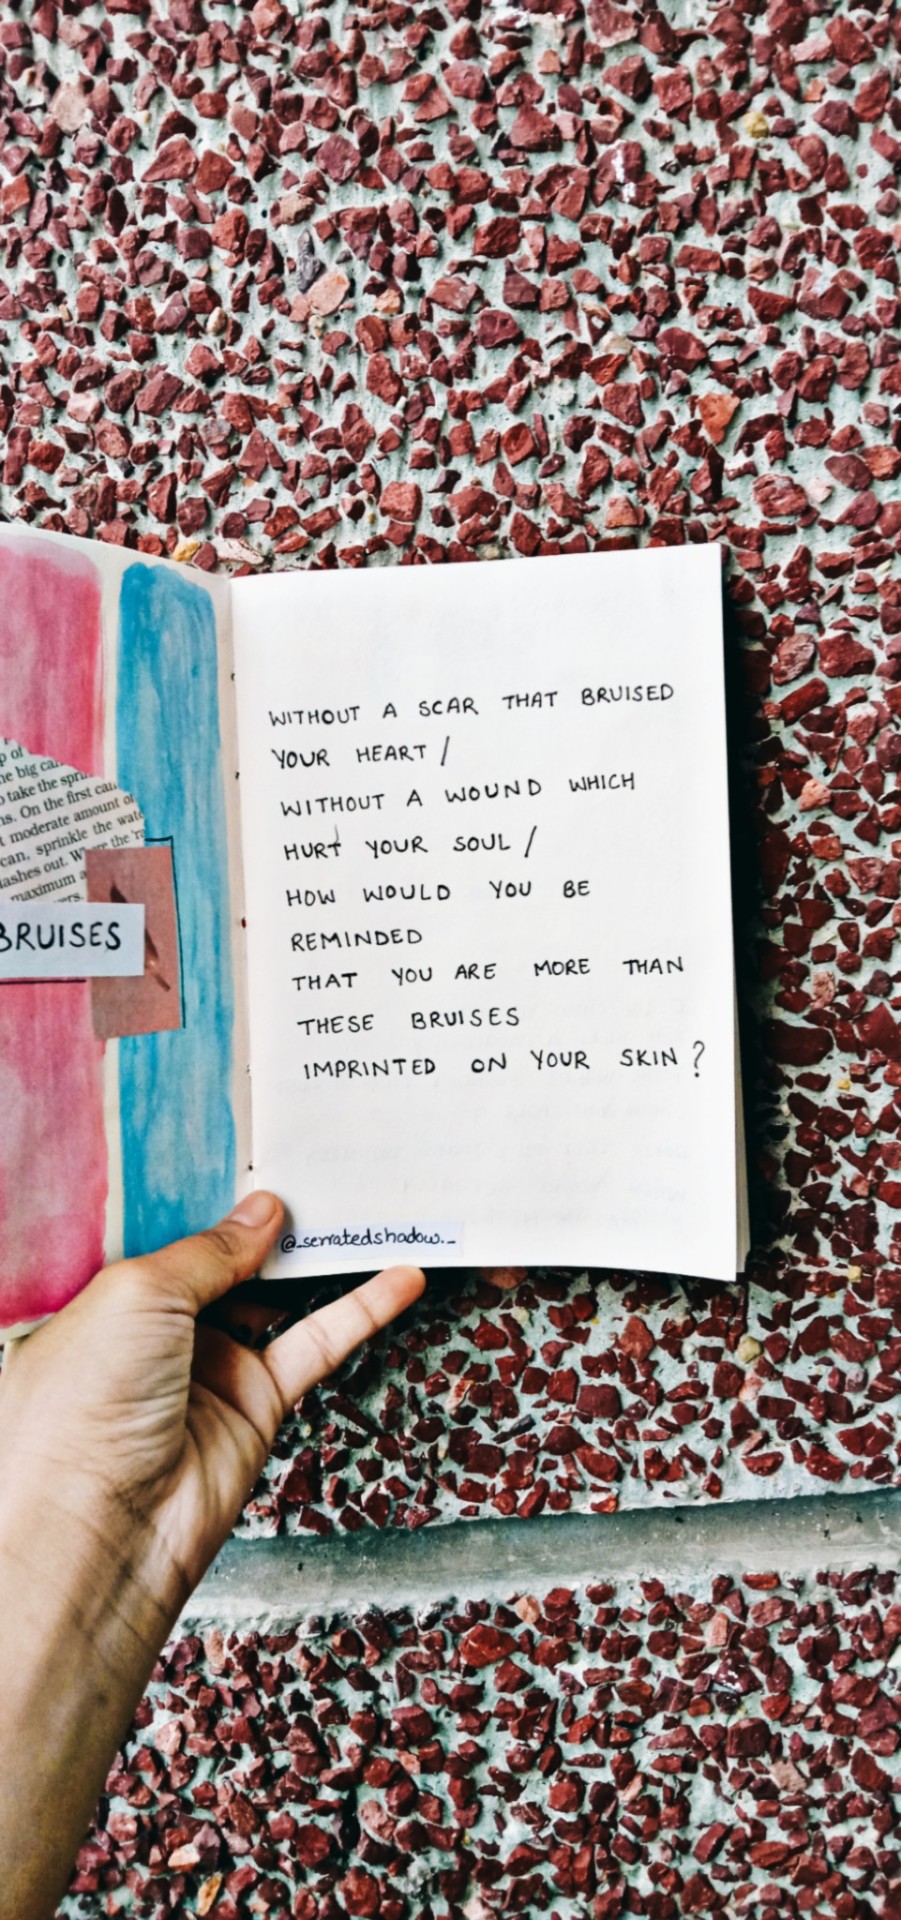 p of
ne big can
o take the spri
ns. On the first can
t moderate amount of
can, sprinkle the wate
lashes out. Where the 'ra
maximum a
vers.
BRUISES
WITHOUT A SCAR THAT BRUISED
YOUR HEART /
WITHOUT A WOUND WHICH
HURT YOUR SOUL /
HOW WOULD YOU BE
REMINDED
THAT YOU ARE MORE THAN
THESE BRUISES
IMPRINTED ON YOUR SKIN ?
@_serratedshadow._